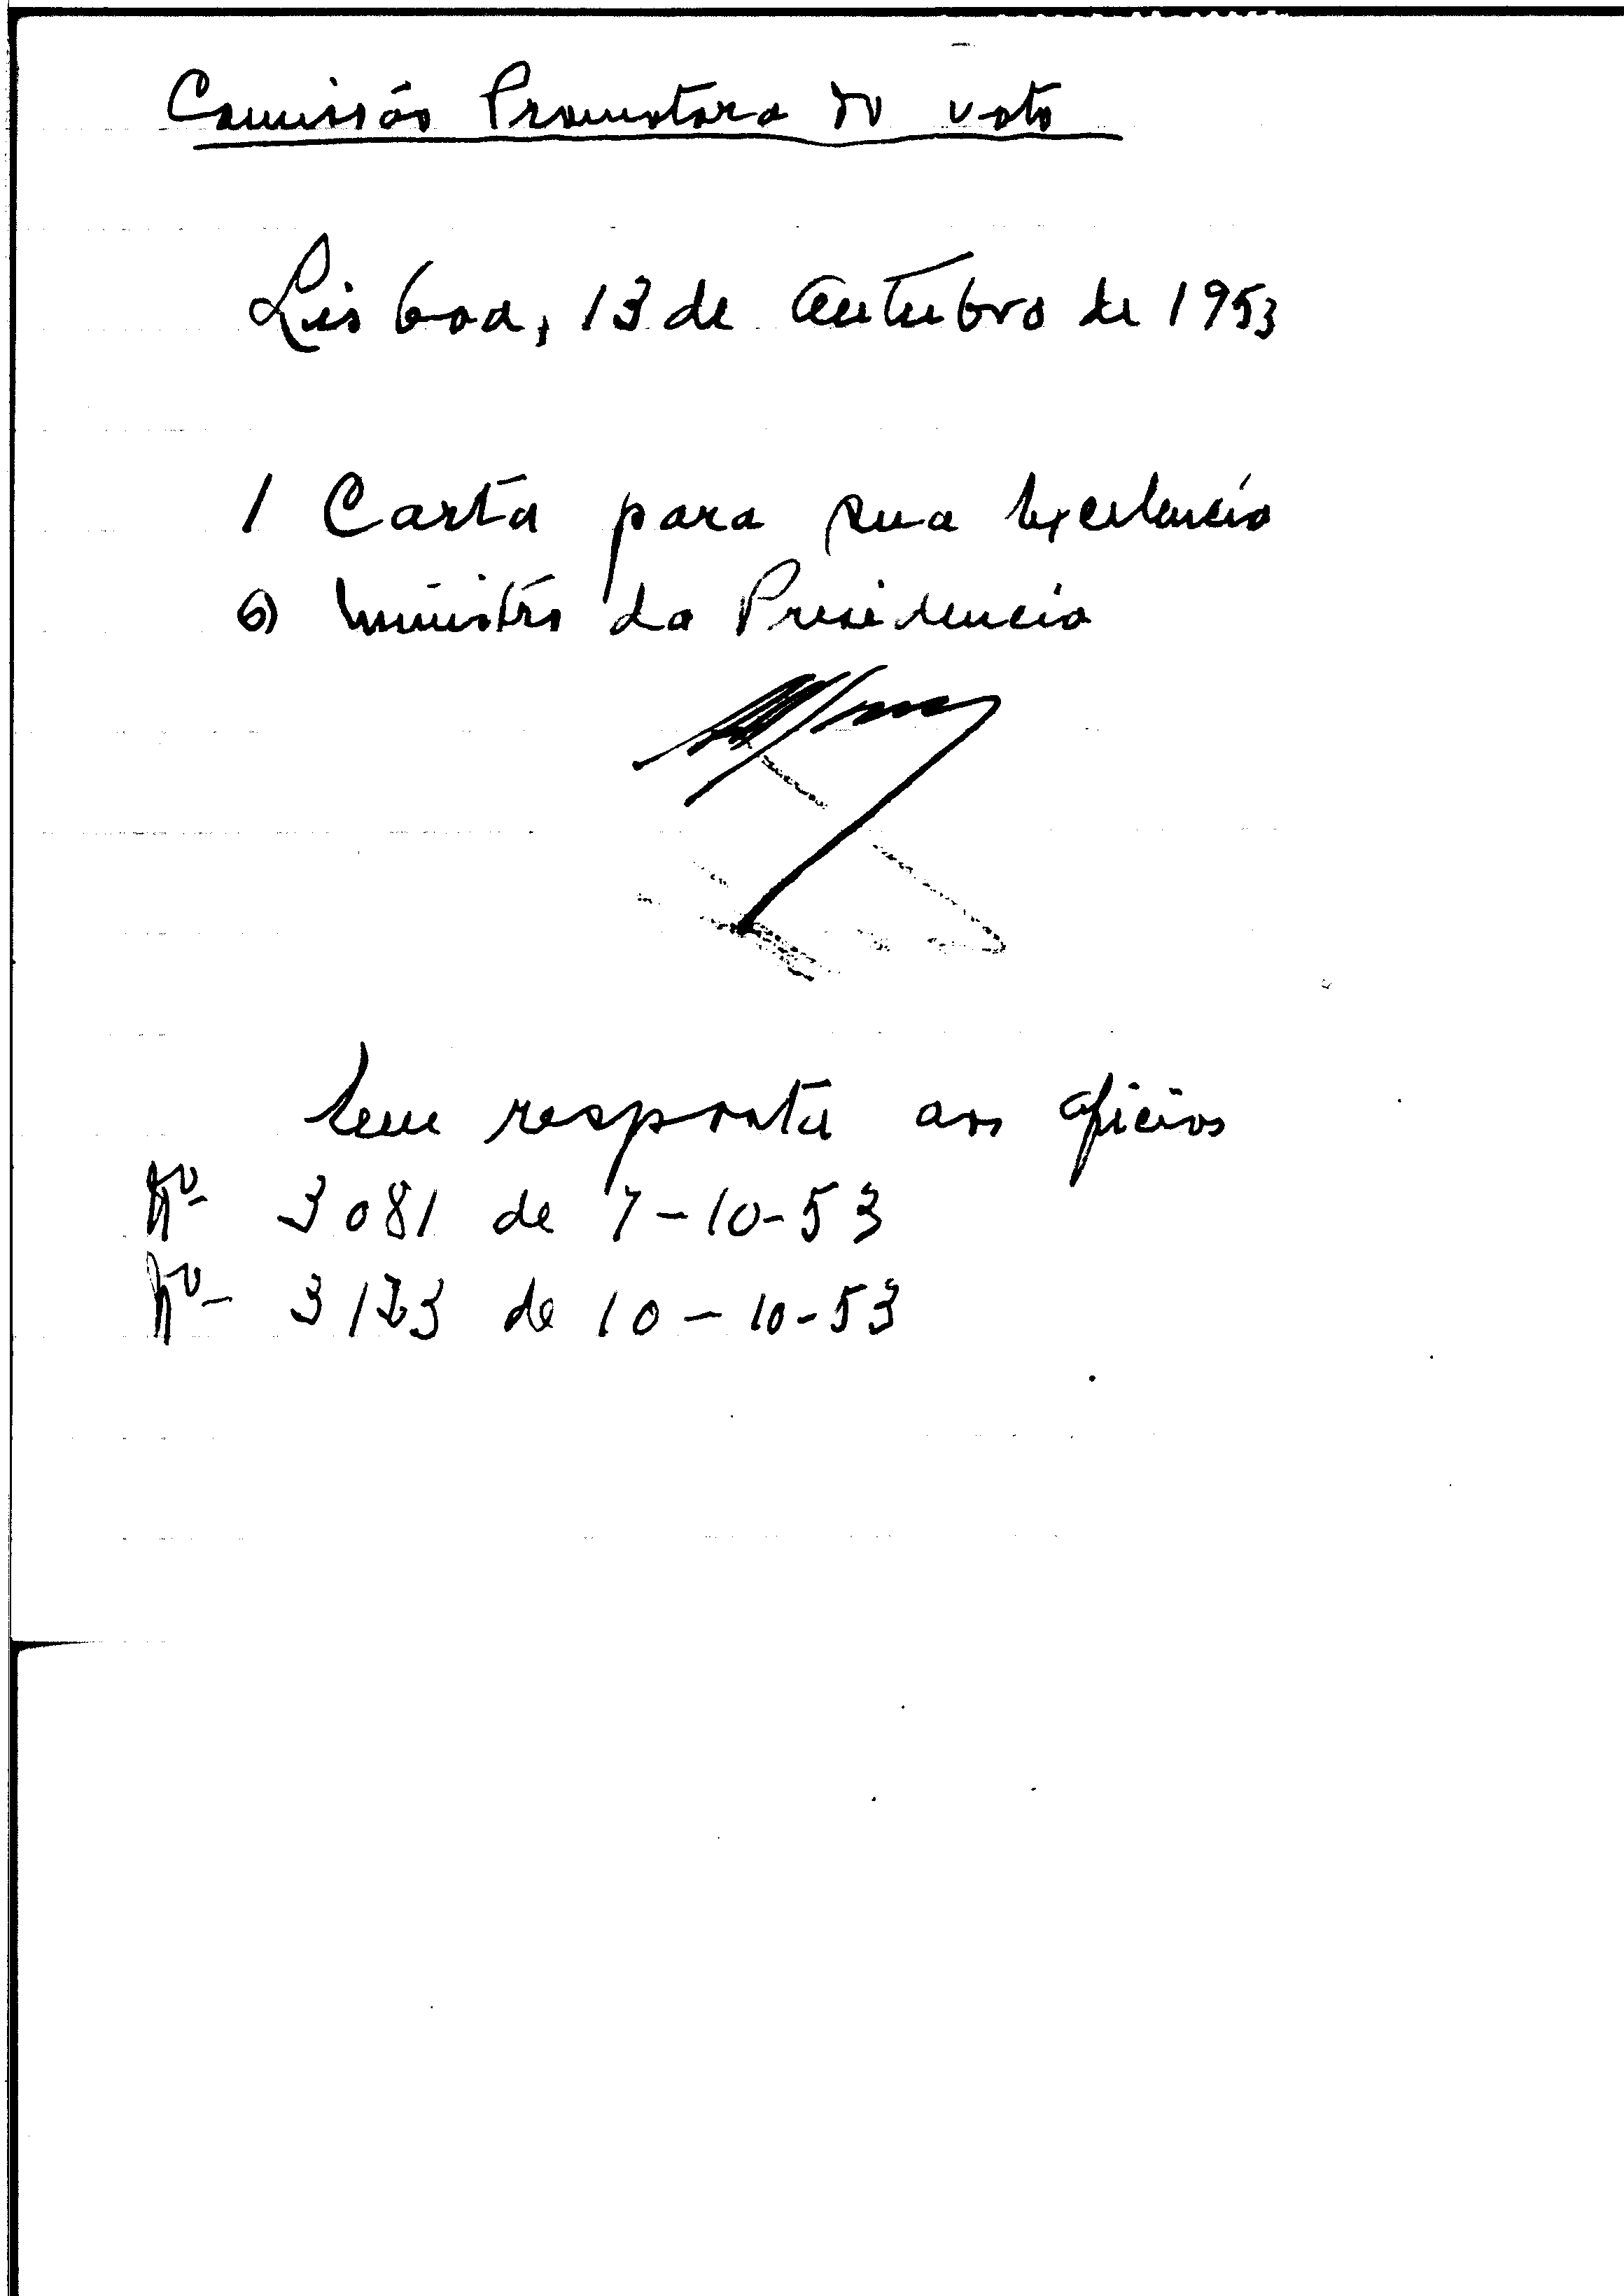 Comissão Promotora do voto
Lisboa, 13 de Outubro de 1953
1 Carta para sua Excelencia
o Ministro da Presidencia
tem resposta aos oficios
Nº 3081 de 7-10-53
Nº 3123 de 10-10-53